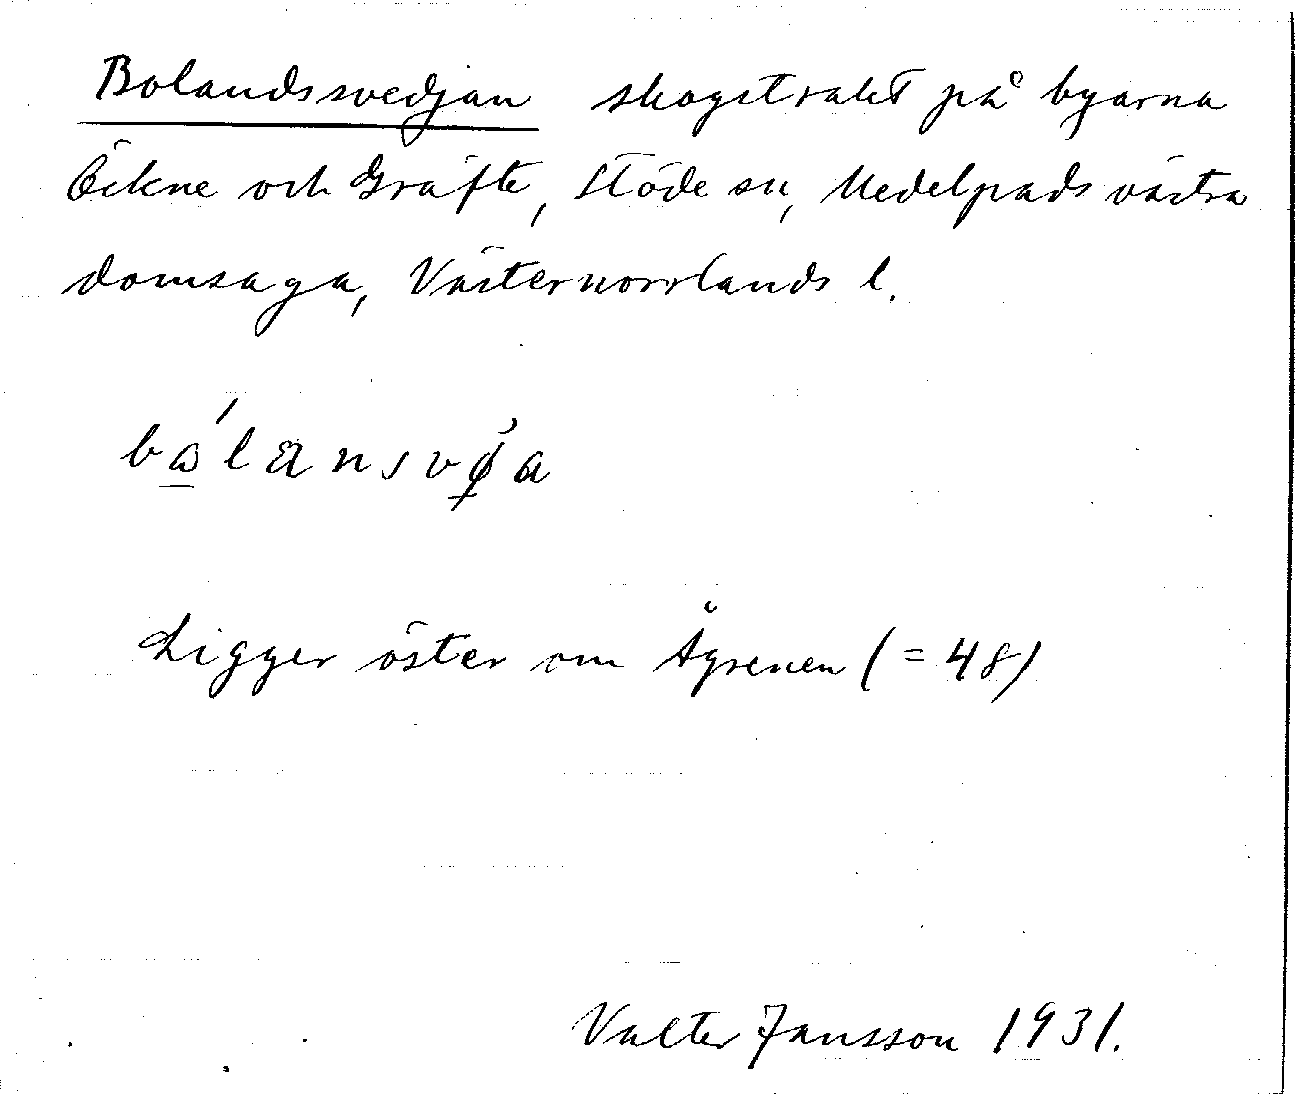 Bolandssvedjan skogstrakt på byarna
Öckne och Gräfte, Stöde sn, Medelpads västra
domsaga, Västernorrlands l.
Ligger öster om Ågrenen (= 48)
Valter Jansson 1931.